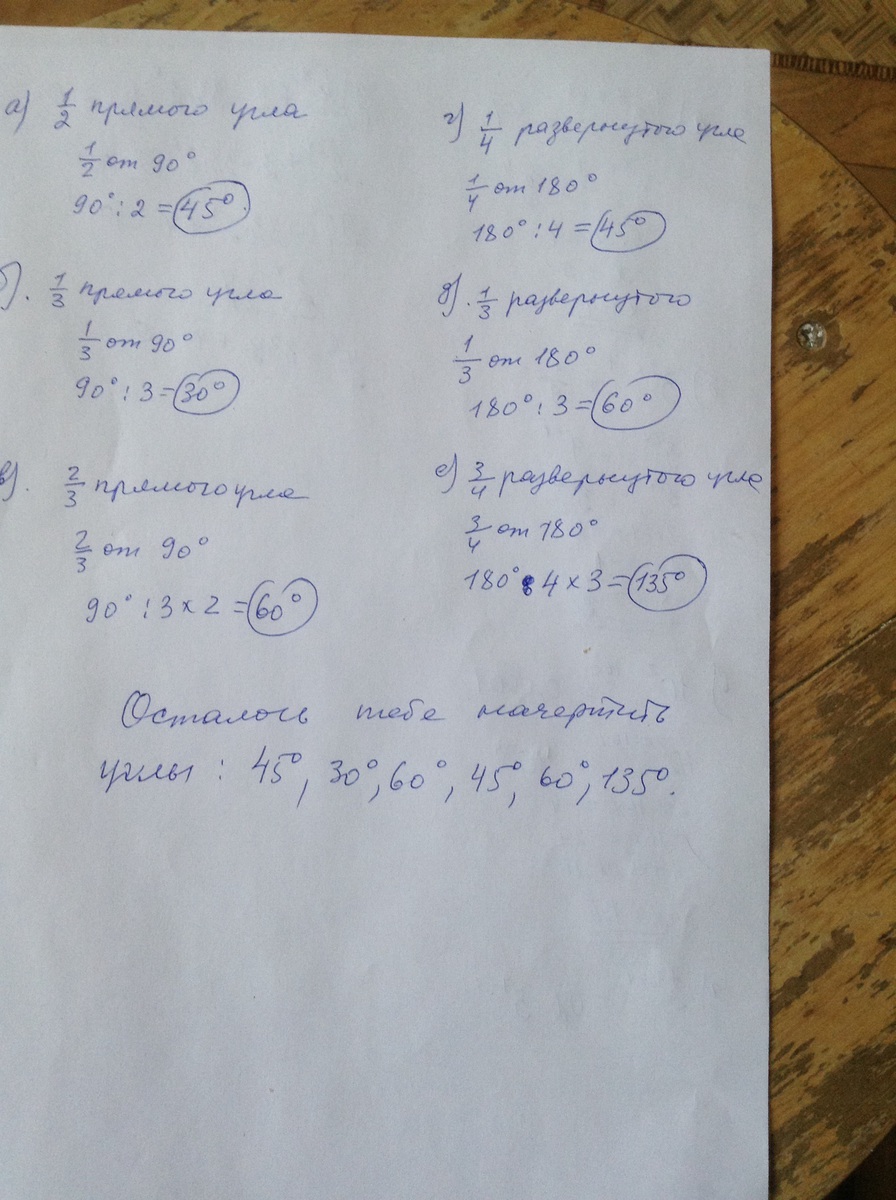 а) 1/2 прямого угла
1/2 от 90°
90° : 2 = 45°
б). 1/3 прямого угла
1/3 от 90°
90° : 3 = 30°
в). 2/3 прямого угла
2/3 от 90°
90° : 3 x 2 = 60°
г) 1/4 развернутого угла
1/4 от 180°
180° : 4 = 45°
д). 1/3 развернутого
1/3 от 180°
180° : 3 = 60°
е) 3/4 развернутого угла
3/4 от 180°
180° : 4 x 3 = 135°
Осталось тебе начертить
углы : 45°, 30°, 60°, 45°, 60°, 135°.